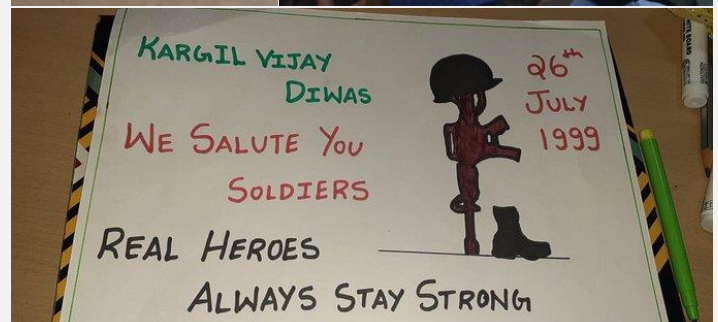 KARGIL VIJAY
DIWAS
26th
JULY
1999
WE SALUTE YOU
SOLDIERS
REAL HEROES
ALWAYS STAY STRONG